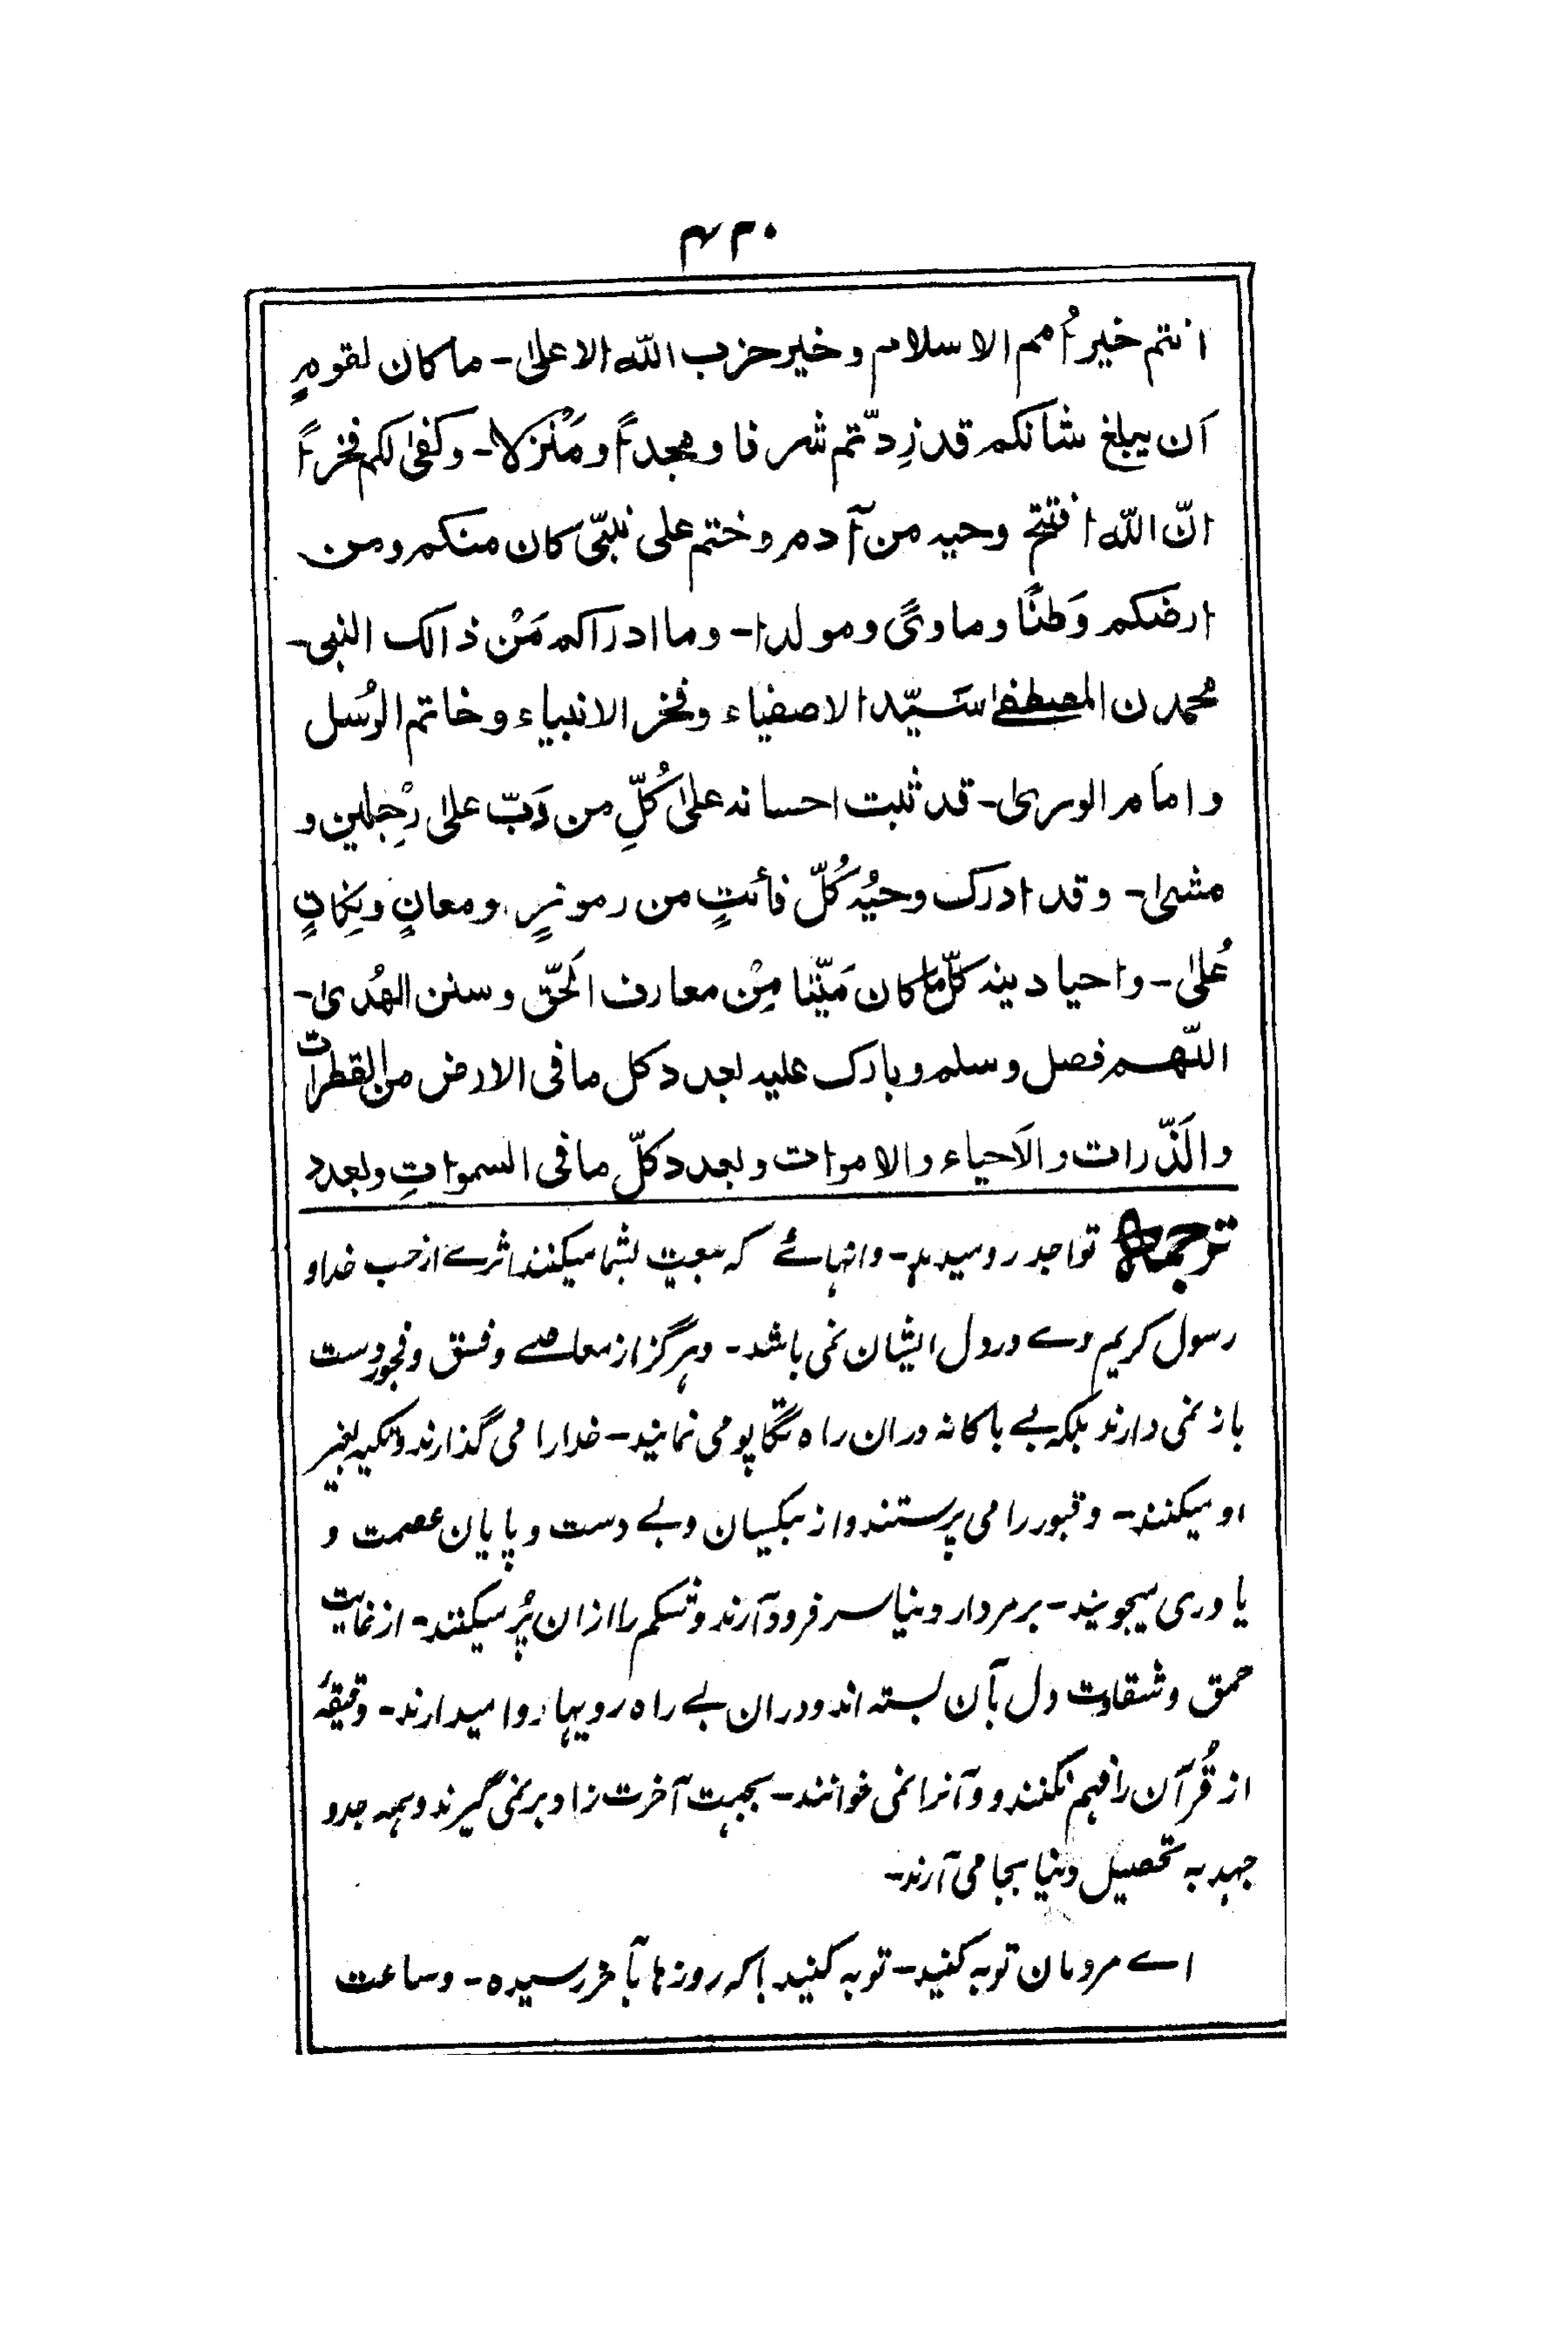 ۴۲۰
انتم خير أُمم الاسلام وخير حزب الله الاعلىٰ - ما كان لقومٍ
اَن يبلغ شانكم قد زِدّتم شرفا ومجداً ومَنْزلا - وكفىٰ لكم فخراً
انّ الله افتتح وحيه من آدم وختم على نبيّ كان منكم ومن
ارضكم وَطنًا وماوىً ومولدا - وما ادراكم مَنْ ذالك النبى -
محمدن المصطفىٰ سيّد الاصفياء وفخر الانبياء وخاتم الرُسل
وامام الورىٰ - قد ثبت احسانه علىٰ كُلِّ من دَبّ علىٰ رِجلين و
مشىٰ - وقد ادرك وحيُه كُلّ فائتٍ من رموزٍ ومعانٍ ونِكاتٍ
عُلىٰ - واحيا دينه كلّ ما كان مَيّتا مِنْ معارف الحَقّ وسنن الهُدىٰ -
اللّهم فصل وسلم وبارك عليه بعدد كل ما فى الارض من القطرات
والذّرات والاَحياء والاموات وبعدد كلّ ما فى السموات وبعدد
ترجمه تواجد رو میدہد - و انہائے کہ بیعت بشما میکنند اثرے از حب خدا و
رسول کریم وے در دل ایشان نمی باشد - و ہرگز از معاصے و فسق و فجور دست
باز نمی دارند بلکہ بے باکانہ دران راہ تگاپو می نمایند - خدا را می گذارند و تکیہ بغیر
او میکنند - و قبور را می پرستند و از بیکسان و بے دست و پایان عصمت و
یاوری میجویند - بر مردار دنیا سر فرود آرند و شکم را ازان پُر میکنند - از غایت
حمق و شقاوت دل بآن بستہ اند و دران بے راہ رویہا روا میدارند - دقیقہٴ
از قُرآن را فہم نکنند و آنرا نمی خوانند - بجہت آخرت زاد بر نمی گیرند و ہمہ جد و
جہد بہ تحصیل دنیا بجا می آرند -
اے مردمان توبہ کنید - توبہ کنید کہ روزہا بآخر رسیدہ - و ساعت